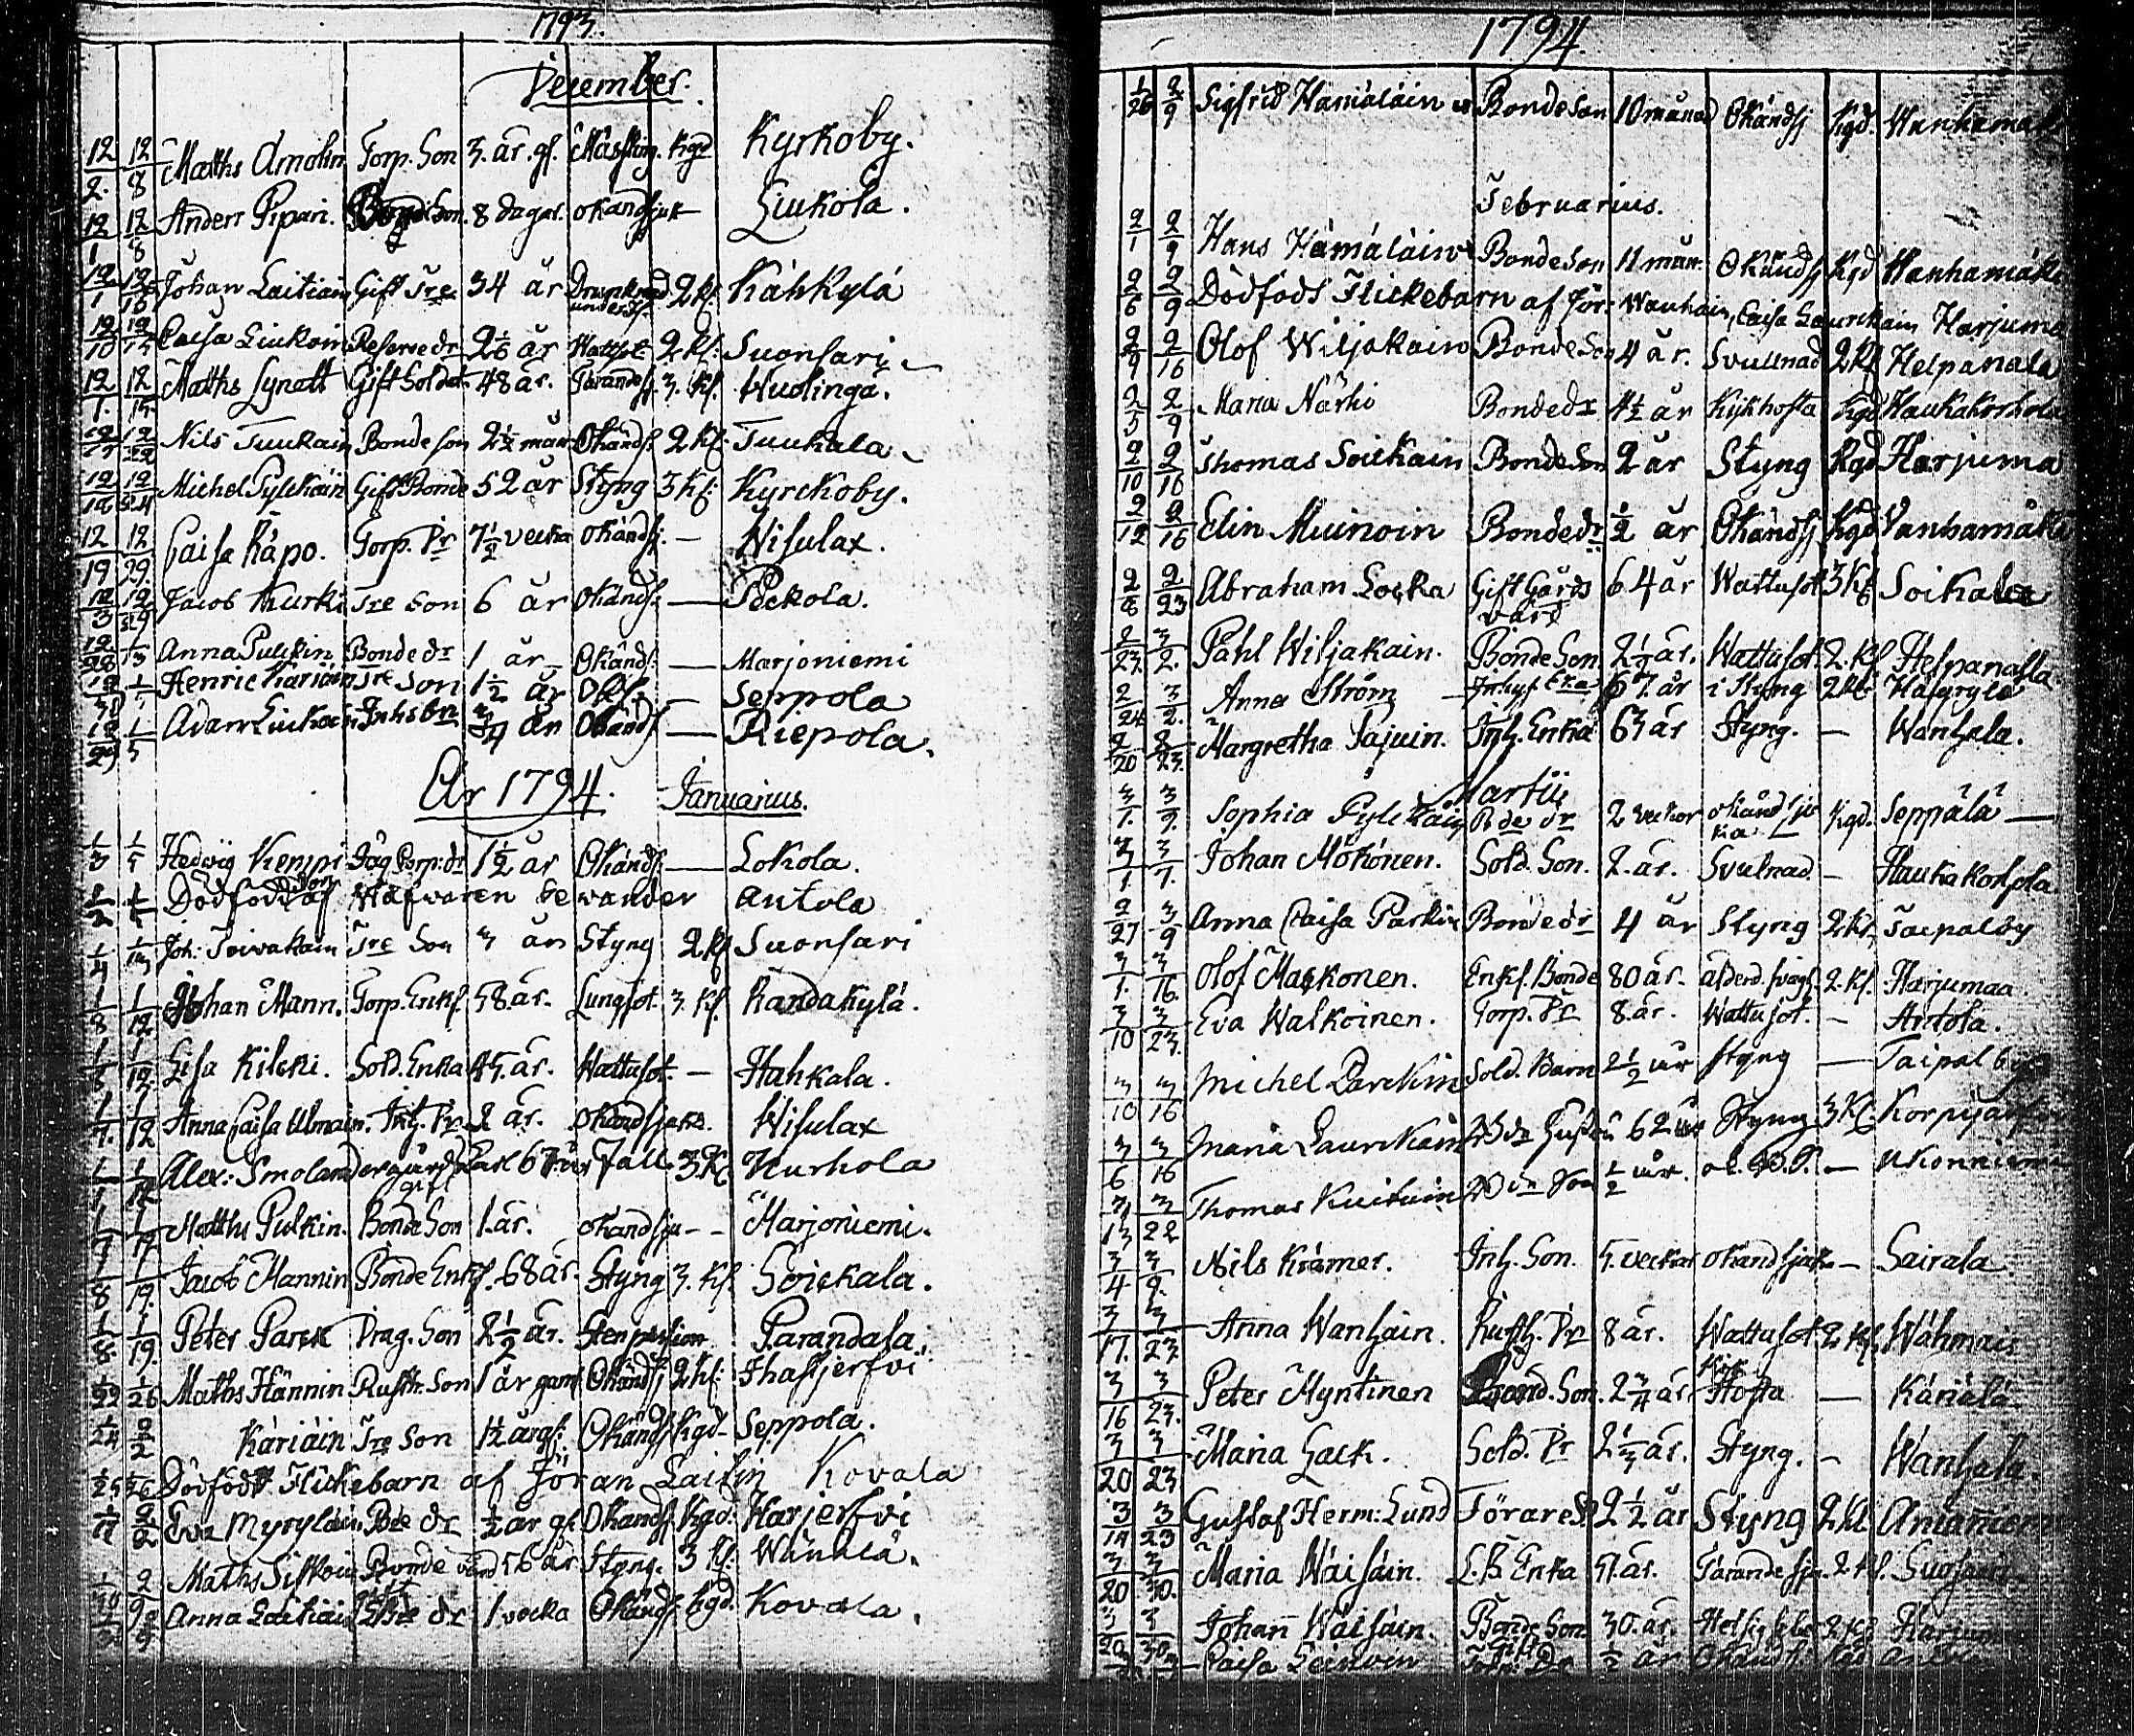 1793.
December.
12/2. 12/8 Matths Arnolin Torp. Son 3. år. gl. Mässling. kgd Kyrkoby.
12/1 12/8 Anders Pipari. Bonde Son. 8 dagar. okandsjuk — Liukola.
12/1 Johan Laitiain Gift Sre 34 år Drunknad 2 kl: Kähkylä
12/10 Caisa Liukoin Reserve dr år Wattsot 2 kl: Suonsari
12/1. 12/15 Matths Lynatt Gift Soldat 48 år. Tärandes. 3. kl. Wuolinga.
Nils Tuukain Bonde son 2 1/2 mån Okänds. 2 kl: Tuukala
Michel Pylckäin Gift Bonde 52 år Styng 3 kl: Kyrckoby.
12/19 12/29. Caisa Räpo. Torp. Dr 7 1/2 vecka okänds. — Nisulax.
12/3 12/29 Jacob Kurki Sre Son 6 år Okänds: — Pöckola.
12/28 Anna Pulckin Bonde dr 1 år Okänds: — Marjoniemi
Henric Käriäin Sre Son 1 1/2 år Oks. — Seppola
12/29 1/5 Adam Liukoin Inhs bn 3/4 år Okänds — Riepola.
År 1794. Januarius.
1/3 1/5 Hedvig Kemppi Torp: dr 1 1/2 år Okänds: — Lokola.
Dödfödd af bewander Antola
1/4 Joh: Toivakain Sre Son 3 år Styng 2 kl Suonsari
1/8 1/12 Johan Mann. Torp. Enkl. 58 år. Lungsot. 3. kl. Kandakylä.
Lisa Kilcki. Sold. Enka 45. år. Wattusot. — Hahkala.
1/12 Anna Caisa Ulmain. Inh. Dr 2 år. okandsjuka. Nisulax
Alex: Smolander gård Karl 67 år Fall. 3 kl Kurhola
gift
Matths Pulkin. Bonde Son 1. år. okandsju - - Marjoniemi.
1/8 1/19. Jacob Mannin Bonde Enkl. 68 år. Styng 3. kl. Soickala.
1/8 1/19. Peter Parck Drag. Son 2 1/2 år. Stenpassion Parandala
1/22 1/26 Matths Hännin Rusth. Son 1 år gam Okänds 2 kl: Ihastjerfvi
1/24 2/2 Käriäin Sre Son 1 1/2 år gl: Okänds kgd Seppola.
1/25 1/26 Dödfödt Flickebarn af Jöran Laitin Kovala
1/17 2/2 Eva Myryläin Bde dr 1/2 år gl Okänds kgd: Harjerfvi
Maths Sitkoin Bonde värd 56 år Styng. 3 kl: Wänälä.
Anna Laitiain Bde dr 1 vecka Okänds: kgd. Kovala.
1794
1/26 2/9 Sigfrid Hämäläin Bonde Son 10 månad Okändsj kgd. Wanhamä
Februarius.
2/1 2/9 Hans Hämäläin Bonde Son 11 mån Okändsj kgd Wanhamäk
2/6 2/9 Dödföds Flickebarn af Jör. Wanhain, Caisa Laurikain Harjuma
2/9 2/16 Olof Wiljakain Bonde Son 4 år. Svullnad 2 kl Helpanala
2/5 2/9 Maria Närhi Bonde dr 4 1/2 år Kikhosta kgd Haukakorhola
2/10 2/16 Thomas Soickain Bonde Son 2 år Styng kgd Harjuma
2/12 2/16 Elin Muinoin Bonde dr 1/2 år Okändsj kgd Vanhamäki
2/8 2/23 Abraham Locka Gift Gårds 64 år Wattusot 3 kl Soikala
värd
2/23 3/2. Påhl Wiljakain. Bonde Son 2 1/2 år. Wattusot. 2. kl Helpanalla
2/24 3/2. Anna Ström Inhys Eka 67 år i Styng 2 kl
2/20 2/23. Margretha Pajuin. Inh. Enka 63 år Styng. — Wanhala.
Martii
3/1. 3/9. Sophia Pylckäin Bde dr 2 veckor okänd sju kgd. Seppälä —
ka
3/1. 3/7. Johan Mökönen. Sold. Son. 2. år. Svulnad. — Haukakorhola
2/27 3/9 Anna Caisa Parkin Bonde dr 4 år Styng 2 kl. Taipalby
3/1. 3/16. Olof Mackonen. Enkl. Bonde 80 år. ålderd. svagh. 2. kl. Harjumaa
3/10 3/23. Eva Walkoinen. Torp. Dr 8. år. Wattusot. — Antola.
3/10 3/16 Michel Parckin Sold. Barn 2 1/2 år Styng — Taipalby
3/6 3/16 Maria Laurikain Bde Hustru 62 år Styng 3 kl. Korpijärf
3/13 3/22 Thomas Kuituin Bde Son 1/2 år. — Ukonniemi
3/4 3/9. Nils Krämer. Inh. Son. 5. veckor okändsjuk — Sairala
3/17. 3/23. Anna Wanhain. Rusth. Dr 8 år. Wattusot. 2 kl. Wähmais
3/16 3/23. Peter Myntinen Son. 2 3/4 år. Kik Hosta — Käriälä
3/20 3/23 Maria Lack. Sold. Dr 2 1/3 år. Styng. - Wanhala.
3/19 3/23 Gustaf Herm: Lund Förare S. 2 1/2 år Styng 2 kl Anianiemi
3/20 3/30. Maria Wäisäin. L. B Enka 51. år. Tärandesju. 2. kl. Suosari
3/20 3/30 Johan Wäisäin. Bonde Son. 30. år. Hetsig feber 2 kl Harjum
Gift
Caisa Leinoin Torp. Dr 1/2 år Okänds: kgd